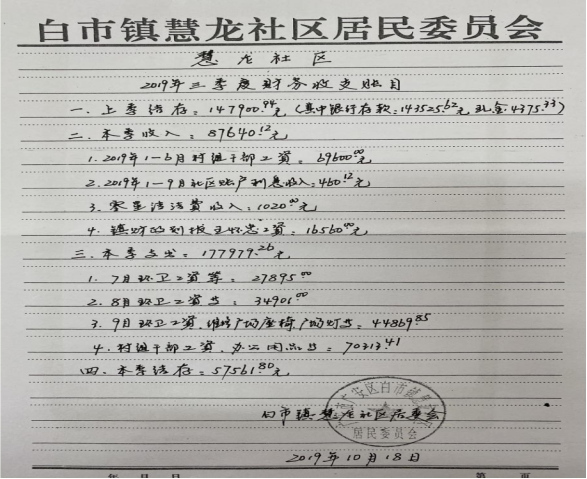 白市镇慧龙社区居民委员会
慧龙社区
2019年三季度财务收支账目
一.上季结存:147900.94元(其中银行存款:143525.62元,现金4375.33)
二.本季收入:87640.12元
1.2019年1-6月村组干部工资:69600.00元
2.2019年1-9月社区账户利息收入:460.12元
3.零星清洁费收入:1020.00元
4.镇财政划拨王怀忠工资:16560.00元
三.本季支出:177979.26元
1.7月环卫工资等:27895.00
2.8月环卫工资等:34901.00
3.9月环卫工资,维修广场座椅广场灯等:44869.85
4.村组干部工资,办公用品等:70313.41
四.本季结存:57561.80元
白市镇慧龙社区居委会
居民委员会
2019年10月18日
年 月 日 第 页